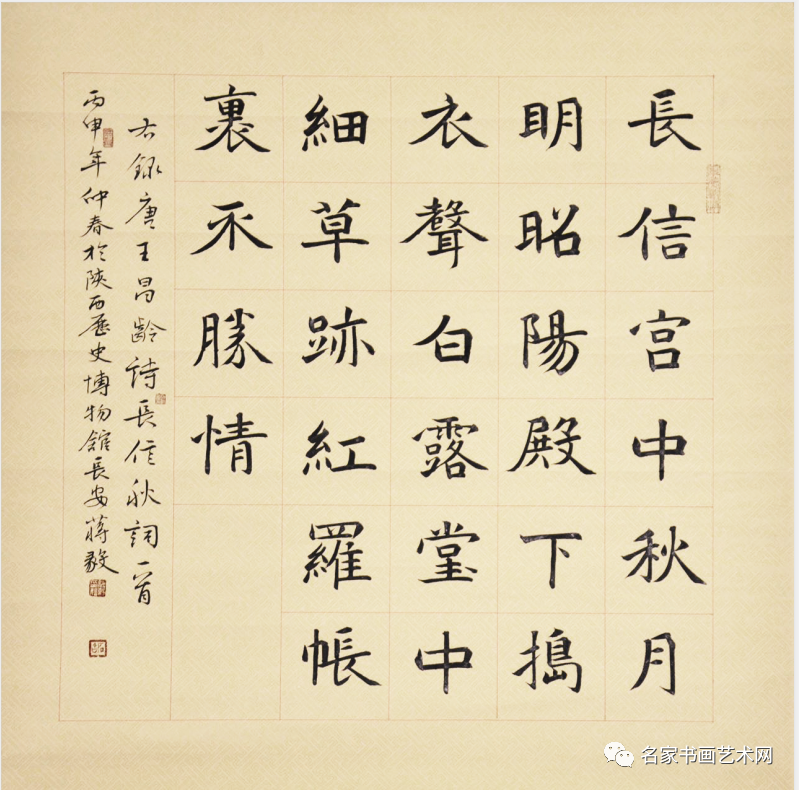 長信宮中秋月
明昭陽殿下搗
衣聲白露堂中
細草跡紅羅帳
裏不勝情
右録唐王昌齡詩長信秋詞一首
丙申年仲春於陝西歷史博物館長安蔣毅
名家书画艺术网